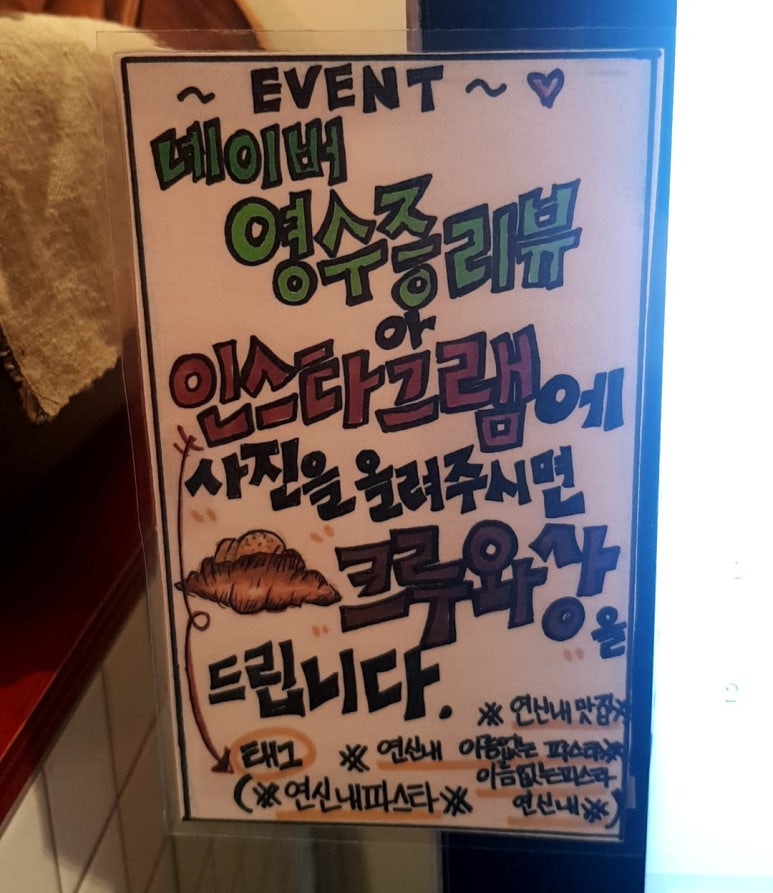 ~ EVENT ~ ♡
네이버
영수증리뷰
아
인스타그램에
사진을 올려주시면
크루와상을
드립니다.
※ 연신내 맛집※
태그 ※ 연신내 이름없는 파스타※
이름없는파스타
(※연신내파스타※ 연신내※)